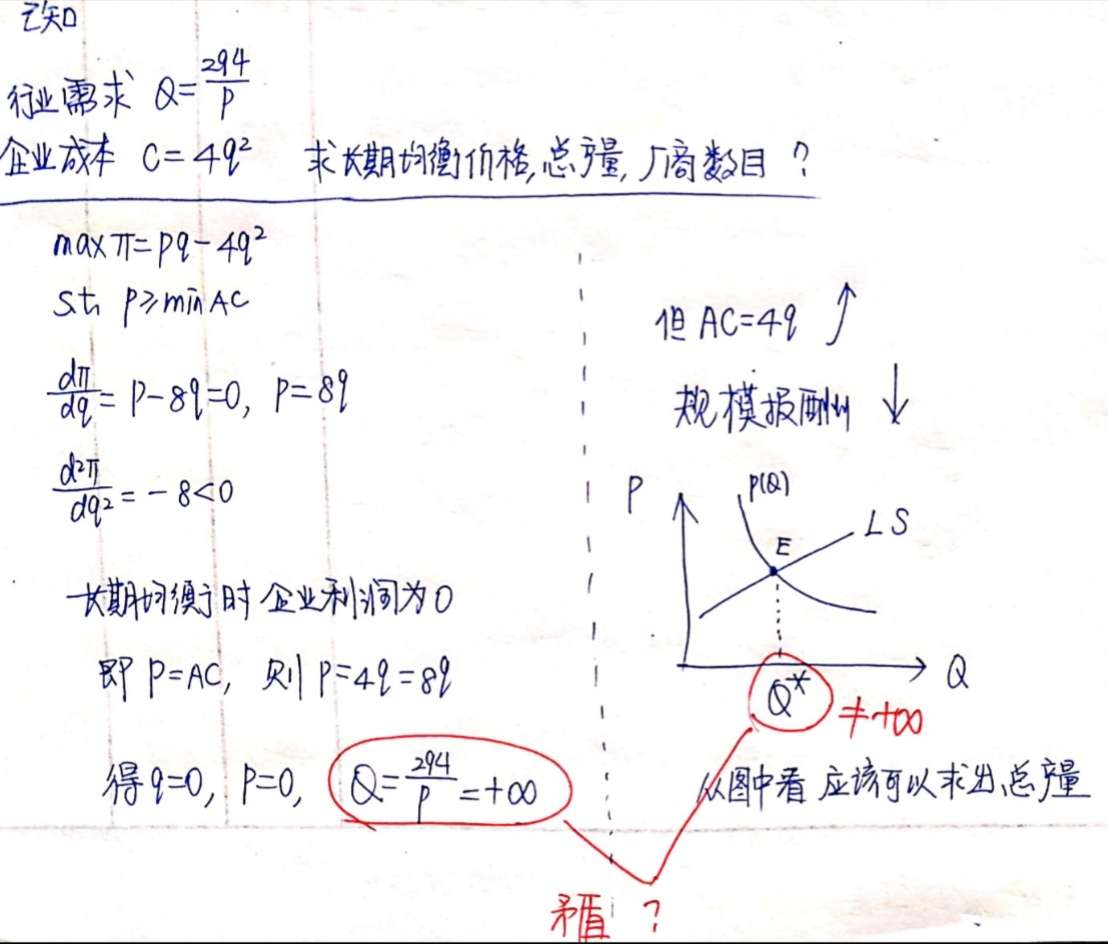 已知
行业需求 Q=294/P
企业成本 C=4q² 求长期均衡价格,总产量,厂商数目?
max π=pq-4q²
s.t. p≥min AC
dπ/dq=P-8q=0, P=8q
d²π/dq²=-8<0
长期均衡时企业利润为0
即 P=AC, 则 P=4q=8q
得 q=0, P=0, Q=294/P=+∞
但 AC=4q ↑
规模报酬 ↓
P
P(Q)
LS
E
Q
Q* ≠+∞
从图中看 应该可以求出总产量
矛盾 ?